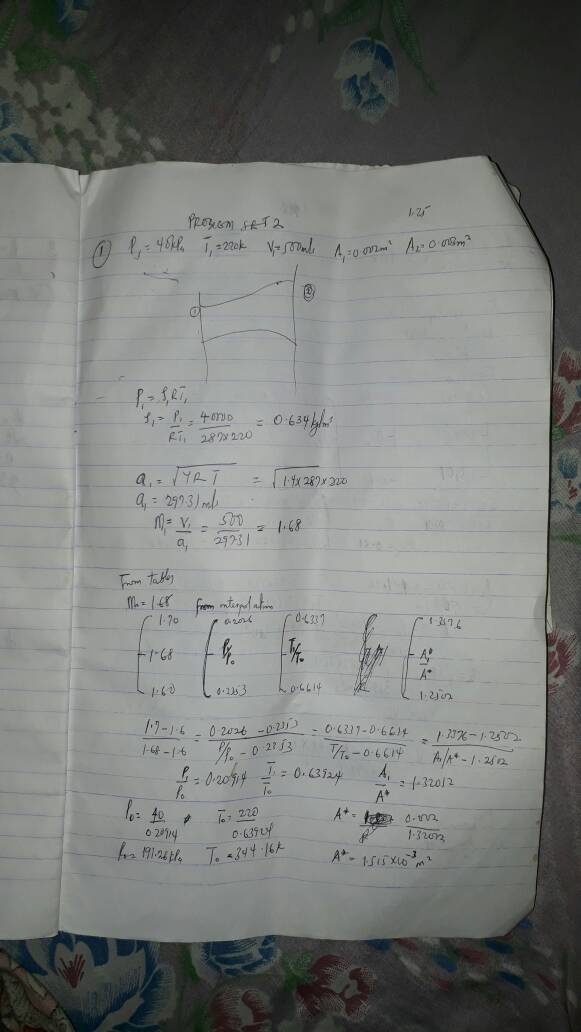 1.25
PROBLEM SET 2
① P₁ = 40kPa T₁ = 220K V₁ = 500m/s A₁ = 0.002m² A₂ = 0.008m²
① ②
P₁ = ρ₁RT₁
ρ₁ = P₁/RT₁ = 40000/287×220 = 0.634kg/m³
a₁ = √γRT = √1.4×287×220
a₁ = 297.31 m/s
M₁ = V₁/a₁ = 500/297.31 = 1.68
From tables
M₁ = 1.68 from interpolation
1.70 0.2026 0.6337 1.3376
1.68 P/P₀ T/T₀ A₁/A*
1.60 0.2353 0.6614 1.2502
1.7-1.6/1.68-1.6 = 0.2026-0.2353/P/P₀-0.2353 = 0.6337-0.6614/T/T₀-0.6614 = 1.3376-1.2502/A₁/A*-1.2502
P₁/P₀ = 0.20914 T₁/T₀ = 0.63924 A₁/A* = 1.32012
P₀ = 40/0.20914 T₀ = 220/0.63924 A* = 0.002/1.32012
P₀ = 191.26kPa T₀ = 344.16K A* = 1.515×10⁻³m²